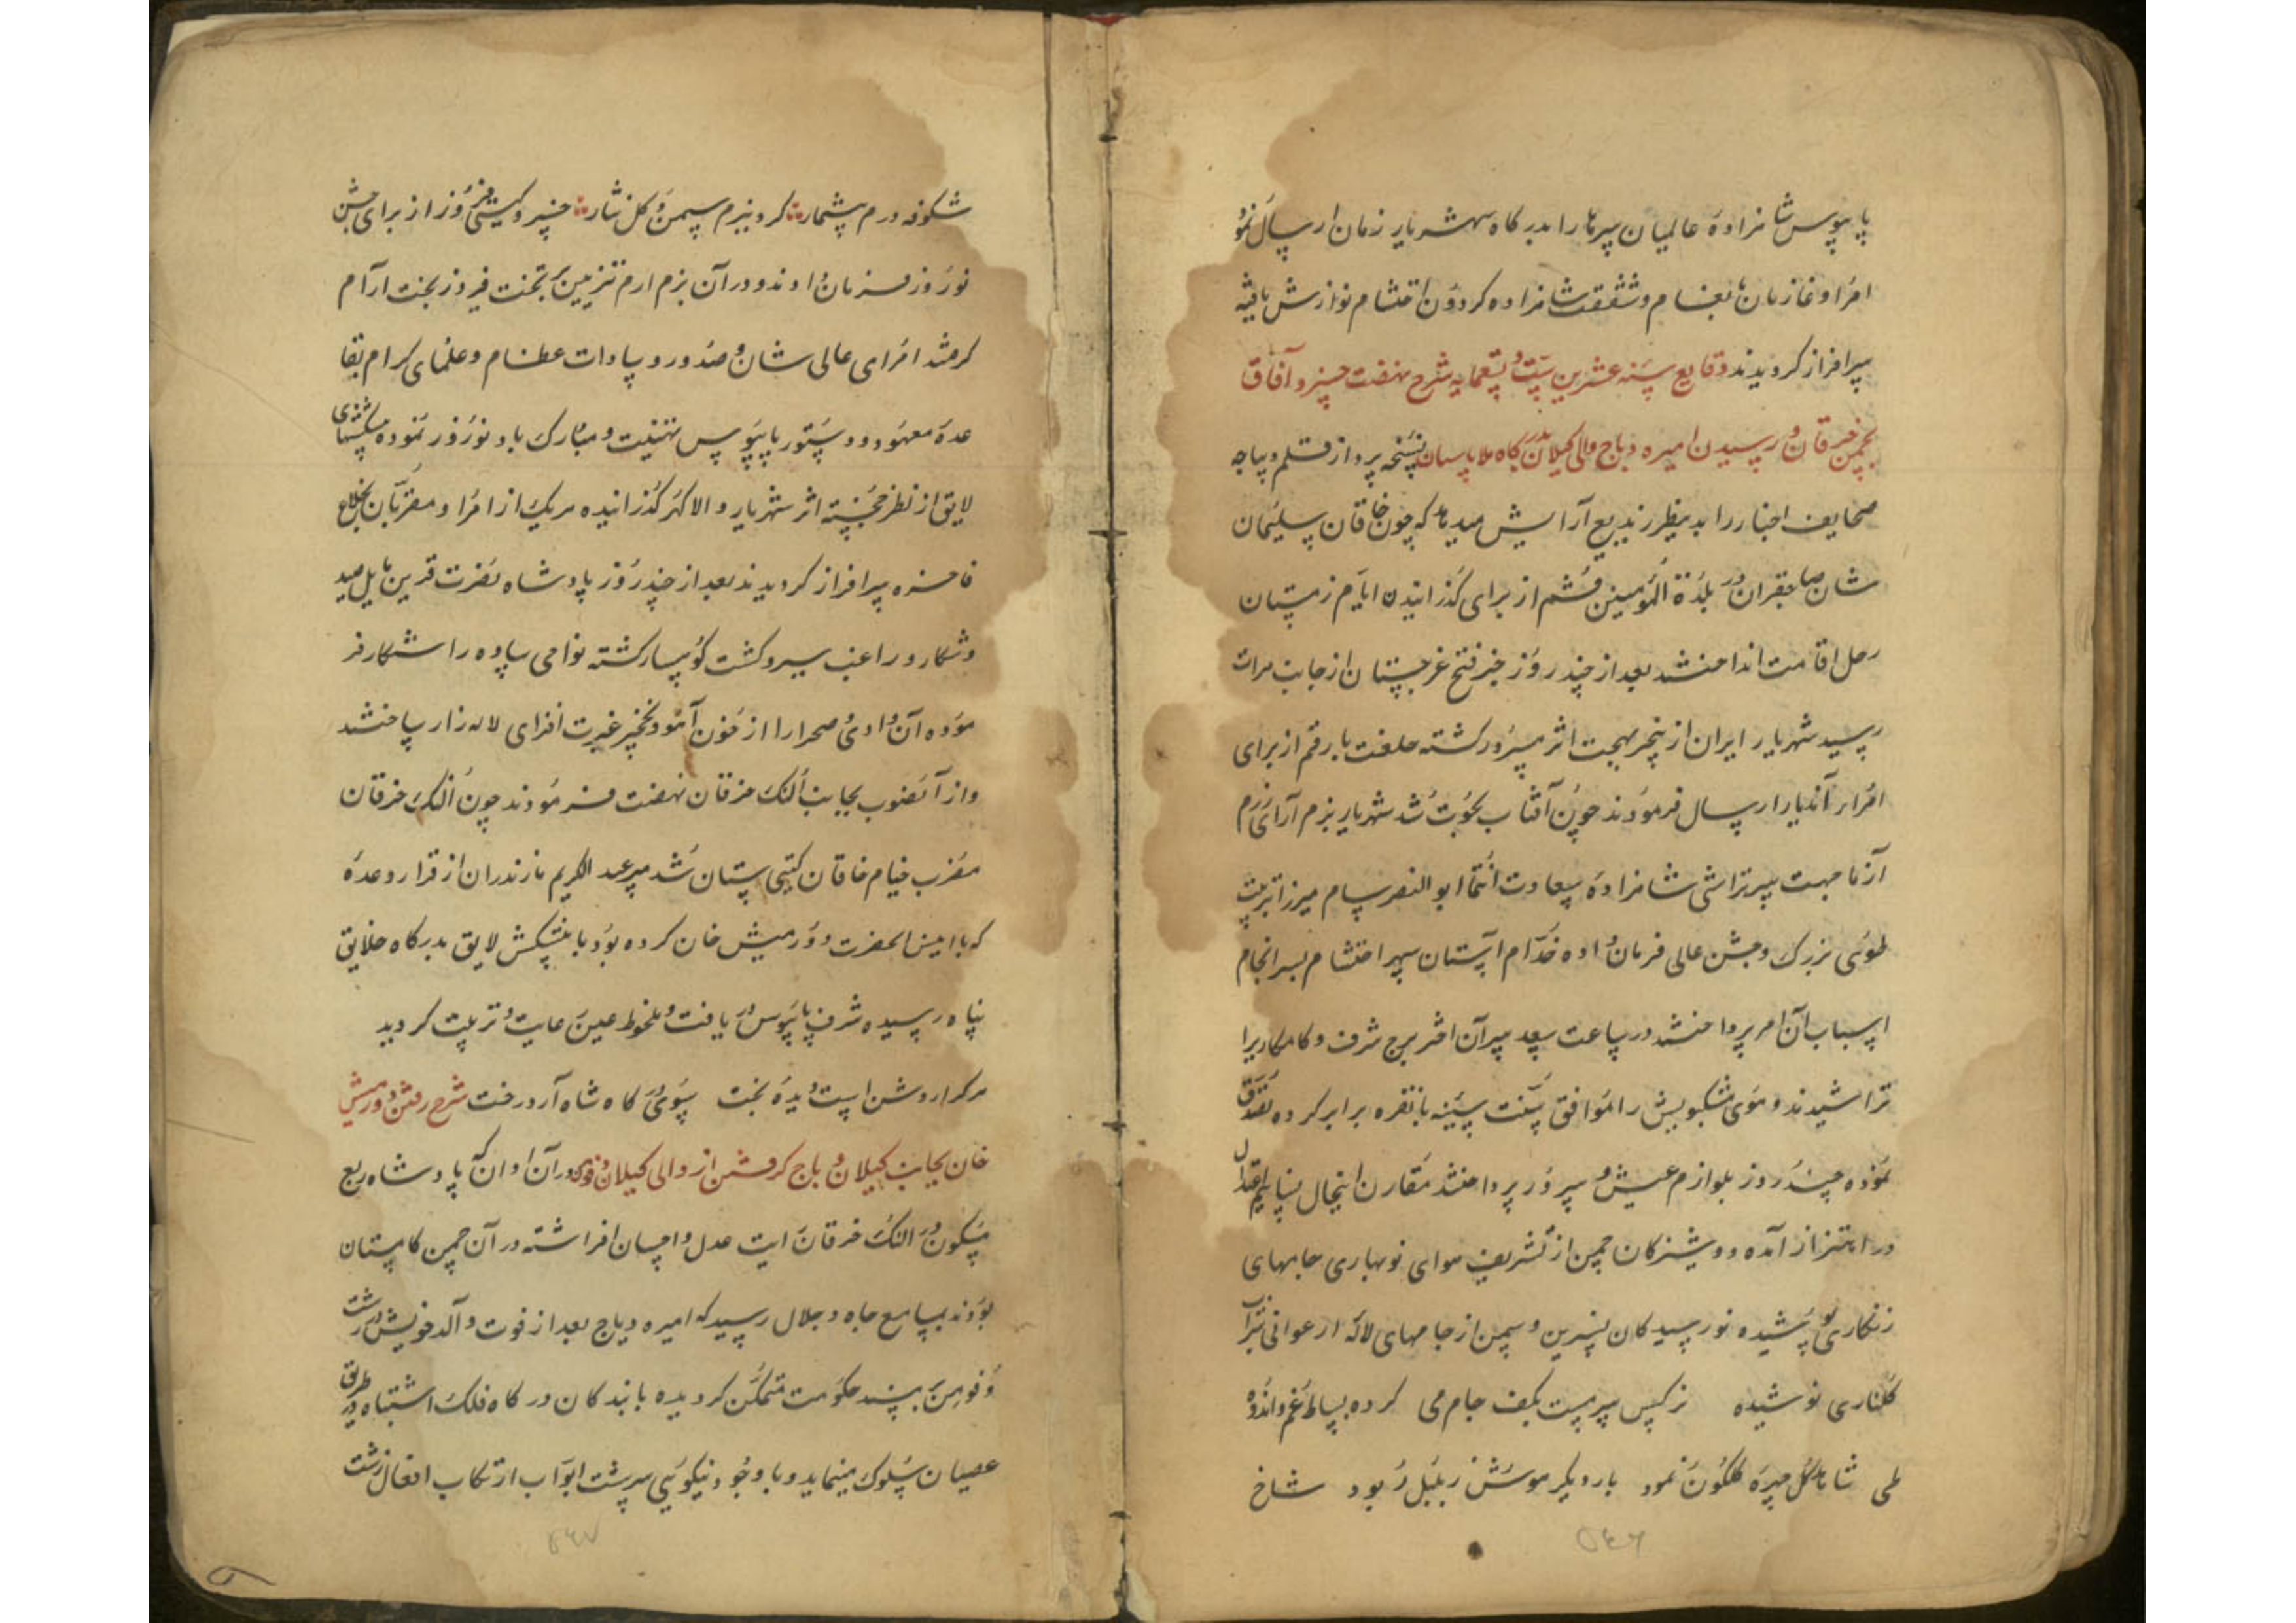 پابوس شاهزادهٔ عالمیان سرها را بدرگاه شهریار زمان ارسال نمو
امرا و غازیان بانعام و شفقت شاهزاده گردون احتشام نوازش یافته
سرافراز گردیدند وقایع سنه عشرین ستّ و تسعمایه شرح نهضت خسرو آفاق
بچمن خرقان و رسیدن امیره دباج والی گیلان بدرگاه ملاپاسبان نسخه پرداز قلم دیباجه
صحایف اخبار را بدینطرز بدیع آرایش میدهد که چون خاقان سلیمان
شان صاحبقران در بلدة المؤمنین قم از برای گذرانیدن ایام زمستان
رحل اقامت انداختند بعد از چند روز خبر فتح غرجستان از جانب هرات
رسید شهریار ایران از خبر بهجت اثر مسرور گشته خلعت با رقم از برای
امراء آندیار ارسال فرمودند چون آفتاب بحوت شد شهریار بزم آرای رزم
آزما جهت سرتراشی شاهزادهٔ سعادت انتما ابو النصر سام میرزا ترتیب
طوی بزرگ و جشن عالی فرمان داده خدّام آستان سپهر احتشام بسرانجام
اسباب آن امر پرداختند در ساعت سعد سر آن اختر برج شرف و کامکاریرا
تراشیدند و موی مشکبویش را موافق سنّت سنیّه با نقره برابر کرده تصدّق
نموده چند روز بلوازم عیش و سرور پرداختند مقارن اینحال نسایم اعتدال
در اهتزاز آمده دوشیزگان چمن از تشریف هوای نوبهاری جامهای
زنگاری پوشیده نورسیدگان نسرین و سمن از جامهای لالهٔ ارغوانی شراب
گلناری نوشیده نرگس سرمست بکف جام می کرده بساط غم و اندوه
طی شاهد گل چهره گلگون نمود بار دیگر هوش ز بلبل ربود شاخ
شکوفه درم بیشمار کرد ببزم سمن و گل نثار خسرو گیتی فروز از برای جشن
نوروز فرمان دادند و در آن بزم ارم تزیین بر تخت فیروز بخت آرام
گرفتند امرای عالی شان و صدور و سادات عظام و علمای کرام بقا
عدهٔ معهود و دستور پابوس تهنیت و مبارک باد نوروز نموده پیشکشهای
لایق از نظر خجسته اثر شهریار والا گهر گذرانیده هریک از امرا و مقربان بخلاع
فاخره سرافراز گردیدند بعد از چند روز پادشاه نصرت قرین مایل صید
و شکار و راغب سیر و گشت کوهسار گشته نواحی ساوه را شکار فر
موده آن وادی و صحرا را از خون آهو و نخجیر غیرت افزای لاله زار ساختند
و از آنصوب بجانب النک خرقان نهضت فرمودند چون النک خرقان
مضرب خیام خاقان گیتی ستان شد میر عبد الکریم مازندران از قرار وعدهٔ
که با امین الحضرت دورمیش خان کرده بود با پیشکش لایق بدرگاه خلایق
پناه رسیده شرف پابوس دریافت و ملحوظ عین عنایت و تربیت گردید
هرکرا روشن است دیدهٔ بخت سوی درگاه شاه آرد رخت شرح رفتن دورمیش
خان بجانب گیلان و باج گرفتن از والی گیلان در آن اوان که پادشاه ربع
مسکون در النک خرقان رایت عدل و احسان افراشته در آن چمن کامستان
بودند بمسامع جاه و جلال رسید که امیره دباج بعد از فوت والد خویش در رشت
و فومن بر مسند حکومت متمکن گردیده با بندگان درگاه فلک اشتباه در طریق
عصیان سلوک مینماید و با وجود نیکویی سرشت ابواب ارتکاب افعال زشت
۵۴۶
۵۴۷